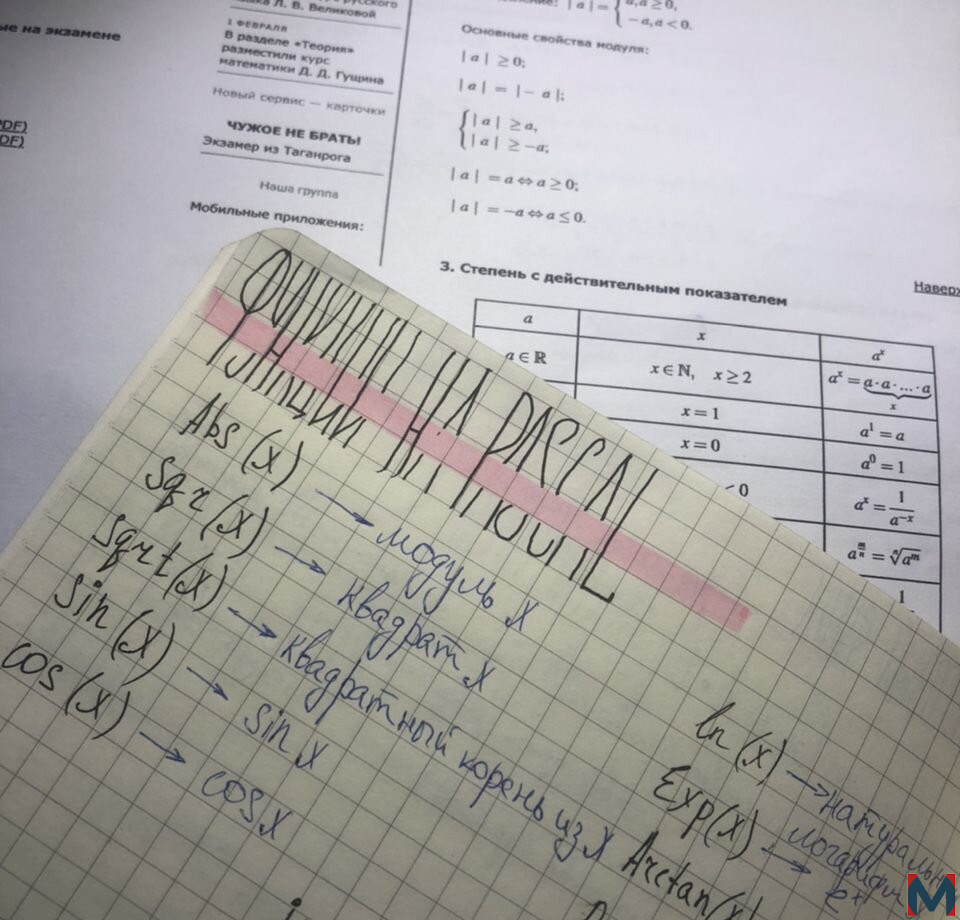 ые на экзамене
DF)
DF)
русского
Л. В. Великовой
1 ФЕВРАЛЯ
В разделе «Теория»
разместили курс
математики Д. Д. Гущина
Новый сервис — карточки
ЧУЖОЕ НЕ БРАТЬ!
Экзамер из Таганрога
Наша группа
Мобильные приложения:
|a| = { a, a ≥ 0,
−a, a < 0.
Основные свойства модуля:
|a| ≥ 0;
|a| = |−a|;
{ |a| ≥ a,
|a| ≥ −a;
|a| = a ⇔ a ≥ 0;
|a| = −a ⇔ a ≤ 0.
3. Степень с действительным показателем
Наверх
a x aˣ
a ∈ ℝ x ∈ ℕ, x ≥ 2 aˣ = a·a·...·a
x
x = 1 a¹ = a
x = 0 a⁰ = 1
< 0 aˣ = 1/a⁻ˣ
a^(m/n) = ⁿ√aᵐ
1
НА PASCAL
Abs (x) → модуль x
sqr (x) → квадрат x
sqrt (x) → квадратный корень из x
sin (x) → sin x
cos (x) → cos x
ln (x) → натуральн
логарифм
Exp(x) → eˣ
Arctan(x)
M